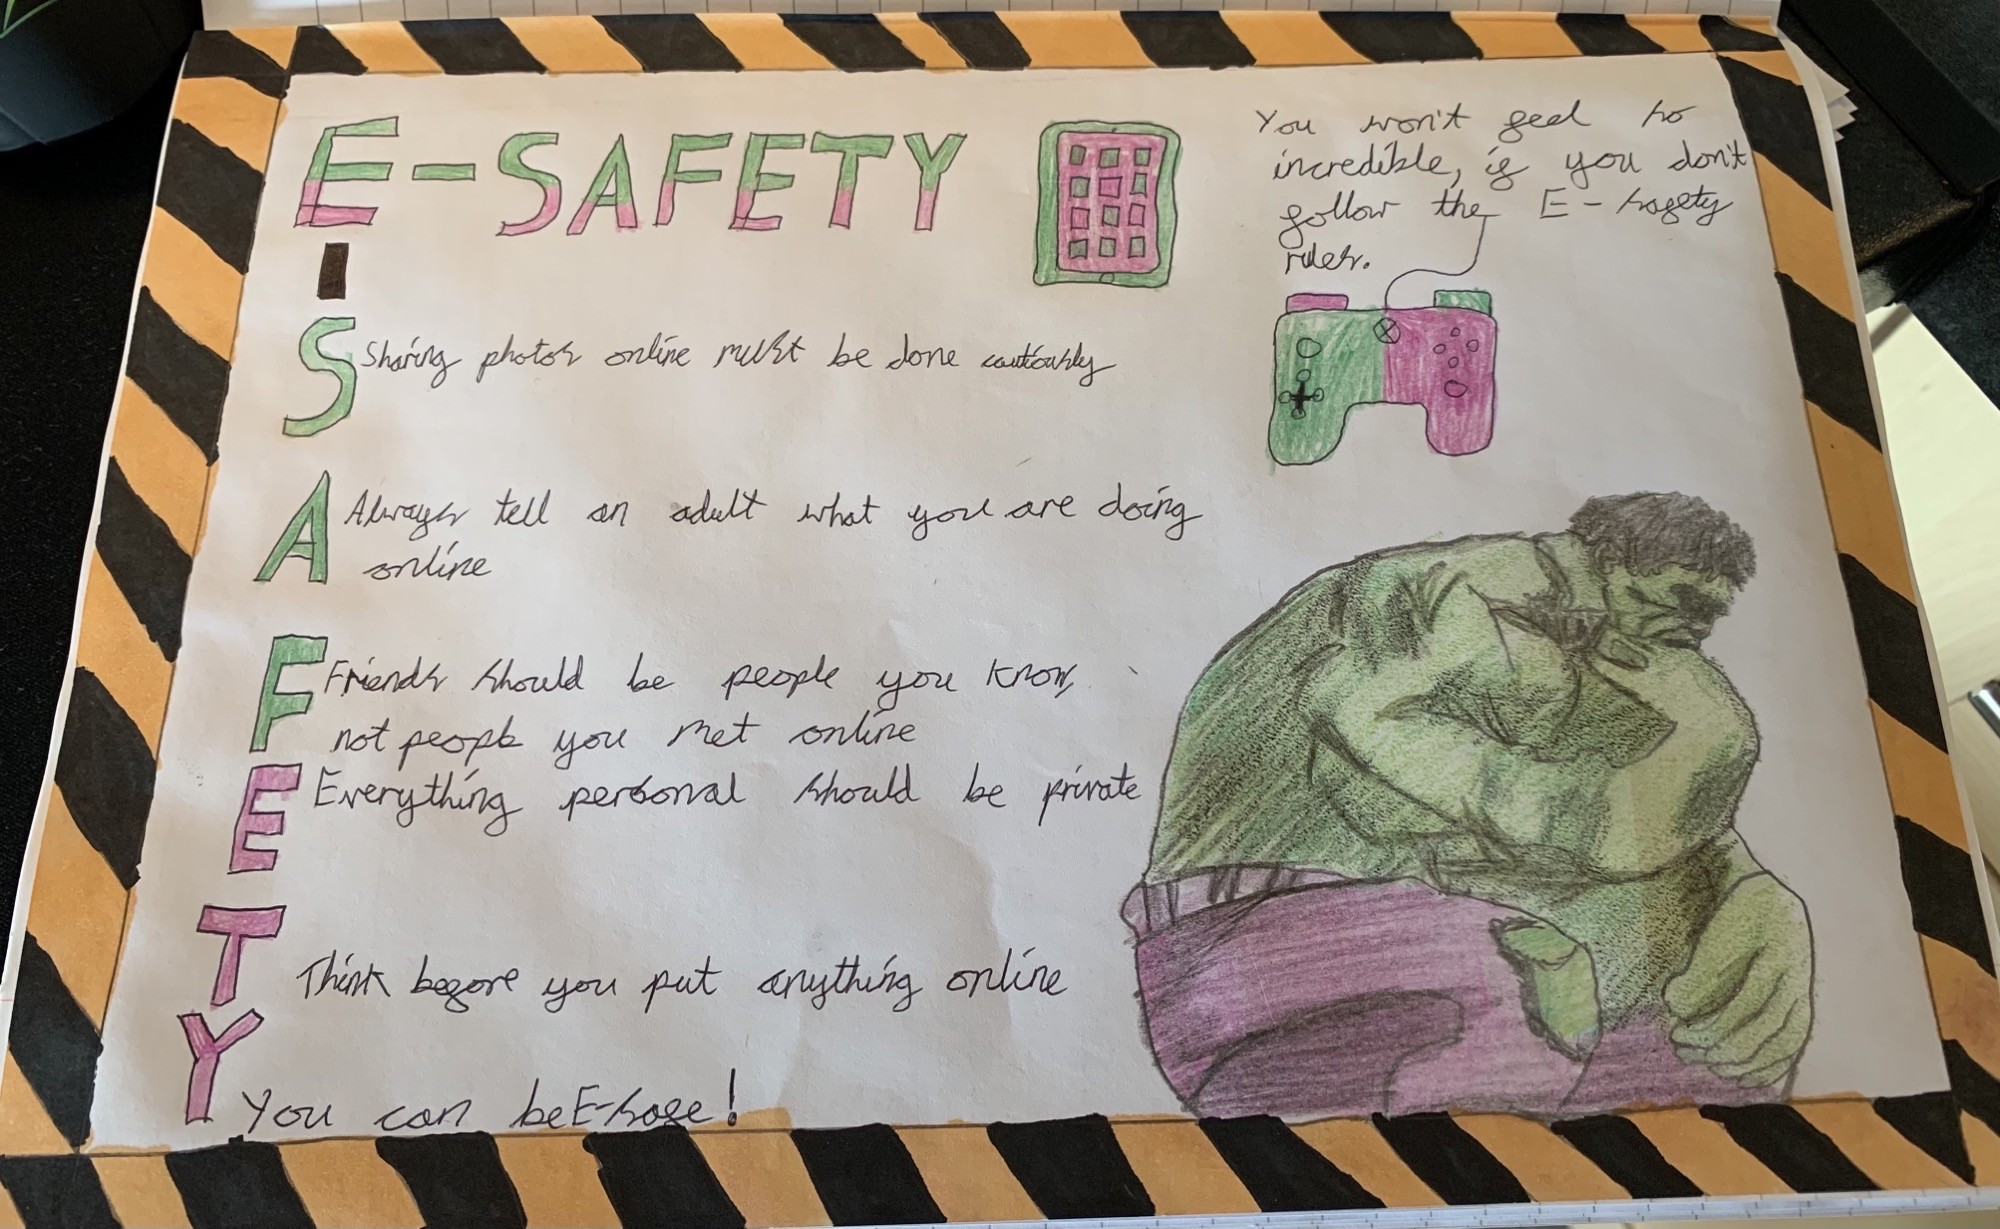 E-SAFETY
You won't feel so
incredible, if you don't
follow the E-safety
rules.
E
-
S Sharing photos online must be done cautiously
A Always tell an adult what you are doing
online
F Friends should be people you know,
not people you met online
E Everything personal should be private
T Think before you put anything online
Y You can be E-safe!